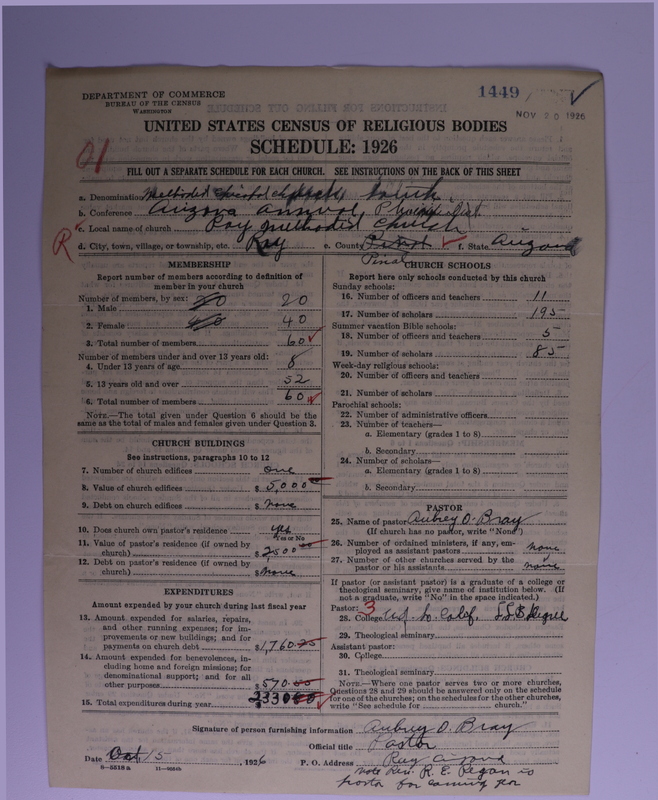 DEPARTMENT OF COMMERCE
BUREAU OF THE CENSUS
WASHINGTON
1449
NOV 20 1926
UNITED STATES CENSUS OF RELIGIOUS BODIES
SCHEDULE: 1926
FILL OUT A SEPARATE SCHEDULE FOR EACH CHURCH. SEE INSTRUCTIONS ON THE BACK OF THIS SHEET
a. Denomination Methodist Episcopal Church South
b. Conference Arizona Annual
R c. Local name of church Ray Methodist Church
d. City, town, village, or township, etc. Ray e. County Pinal f. State Arizona
Pinal
MEMBERSHIP
Report number of members according to definition of member in your church
Number of members, by sex:
1. Male 20
2. Female 40
3. Total number of members 60
Number of members under and over 13 years old:
4. Under 13 years of age 8
5. 13 years old and over 52
6. Total number of members 60
NOTE.—The total given under Question 6 should be the
same as the total of males and females given under Question 3.
CHURCH BUILDINGS
See instructions, paragraphs 10 to 12
7. Number of church edifices one
8. Value of church edifices $ 5,000 00
9. Debt on church edifices $ None
10. Does church own pastor's residence yes
Yes or No
11. Value of pastor's residence (if owned by
church) $ 2500 00
12. Debt on pastor's residence (if owned by
church) $ None
EXPENDITURES
Amount expended by your church during last fiscal year
13. Amount expended for salaries, repairs,
and other running expenses; for im-
provements or new buildings; and for
payments on church debt $ 1,760.25
14. Amount expended for benevolences, in-
cluding home and foreign missions; for
denominational support; and for all
other purposes $ 570.00
15. Total expenditures during year $ 2330
CHURCH SCHOOLS
Report here only schools conducted by this church
Sunday schools:
16. Number of officers and teachers 11
17. Number of scholars 195
Summer vacation Bible schools:
18. Number of officers and teachers 5
19. Number of scholars 85
Week-day religious schools:
20. Number of officers and teachers
21. Number of scholars
Parochial schools:
22. Number of administrative officers
23. Number of teachers—
a. Elementary (grades 1 to 8)
b. Secondary
24. Number of scholars—
a. Elementary (grades 1 to 8)
b. Secondary
PASTOR
25. Name of pastor Aubrey O. Bray
(If church has no pastor, write "None")
26. Number of ordained ministers, if any, em-
ployed as assistant pastors none
27. Number of other churches served by the
pastor or his assistants none
If pastor (or assistant pastor) is a graduate of a college or
theological seminary, give name of institution below. (If
not a graduate, write "No" in the space indicated.)
Pastor: 3
28. College So. Calif. Degree
29. Theological seminary
Assistant pastor:
30. College
31. Theological seminary
NOTE.—Where one pastor serves two or more churches,
Questions 28 and 29 should be answered only on the schedule
for one of the churches; on the schedules for the other churches,
write "See schedule for church."
Signature of person furnishing information Aubrey O. Bray
Official title Pastor
Date Oct 15, 1926 P. O. Address Ray Arizona
8—5518 a 11—
note Rev. R. E. Regan is
pastor for coming year